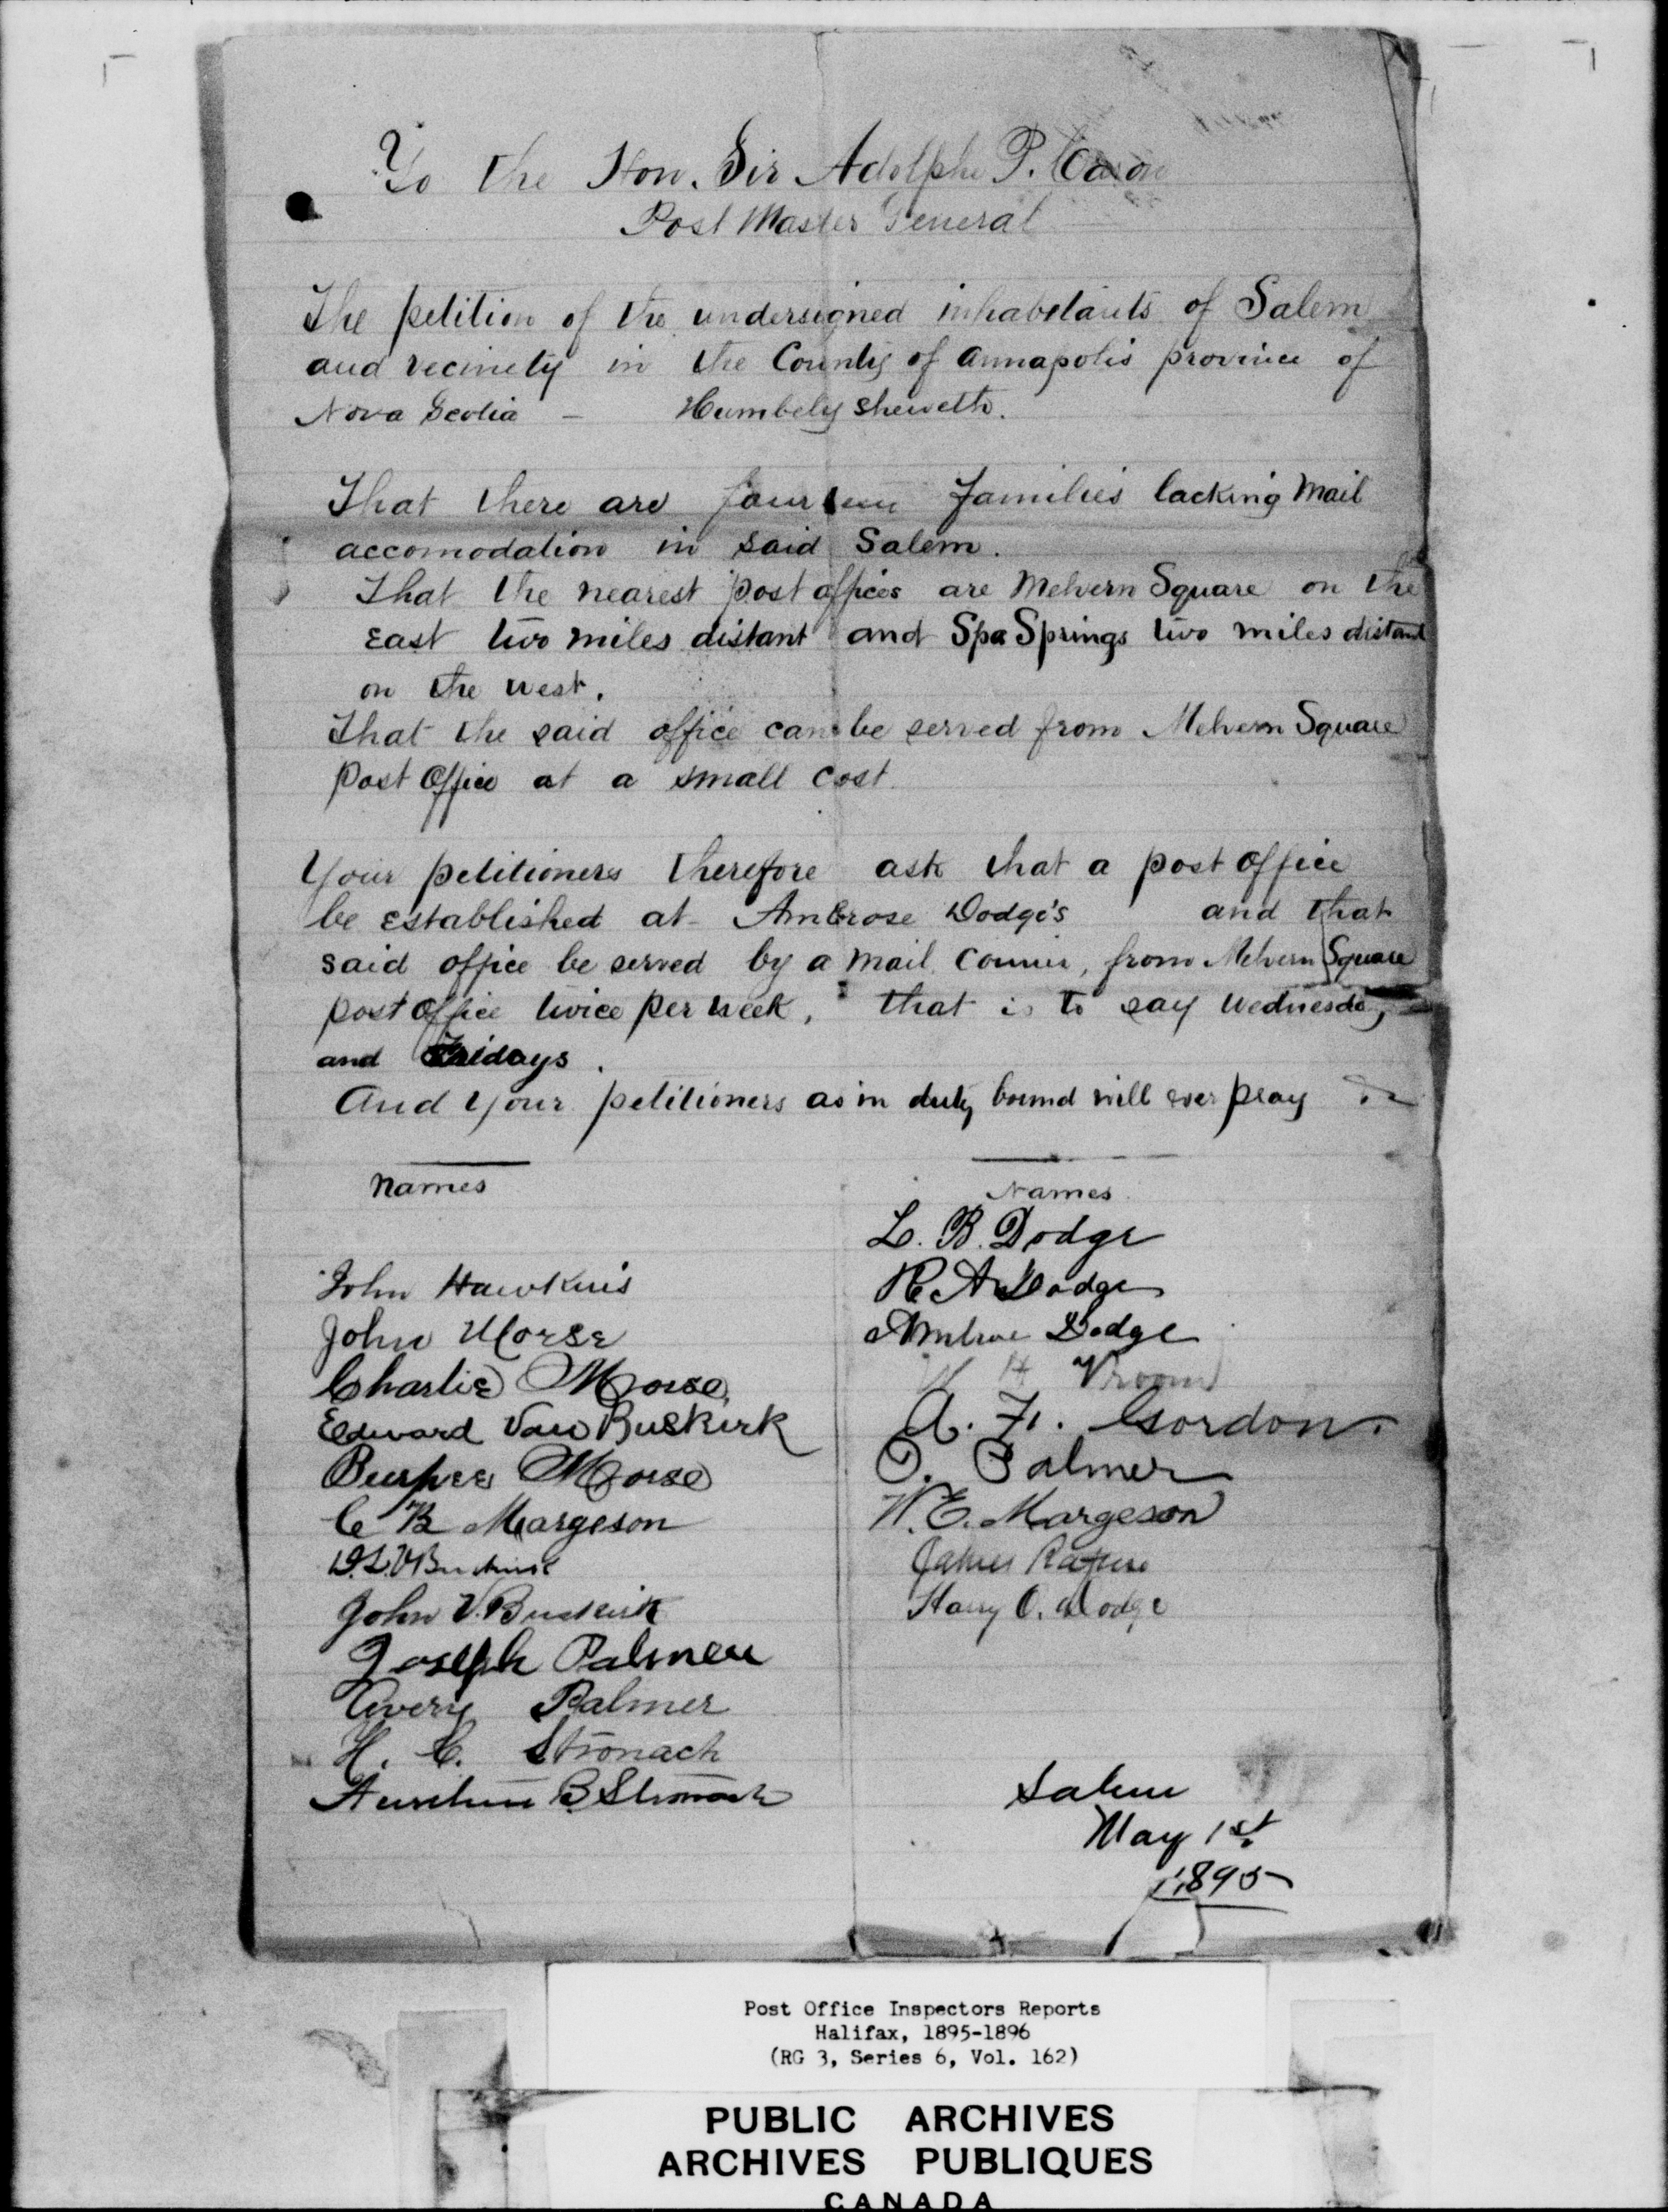 To the Hon. Sir Adolphe P. Caron
Post Master General
The petition of the undersigned inhabetants of Salem
and vecinety in the County of Annapolis province of
Nova Scotia - Humbely sheweth.
That there are fourteen families lacking Mail
accomodation in said Salem.
That the nearest post offices are Melvern Square on the
East two miles distant and Spa Springs two miles distant
on the west.
That the said office can be served from Melvern Square
Post Office at a small cost
Your petitioners therefore ask that a post office
be Established at Ambrose Dodge's and that
said office be served by a Mail Courier, from Melvern Square
post office twice per week, that is to say Wednesday
and Fridays.
And Your petitioners as in duty bound will ever pray
Names
John Hawkins
John Morse
Charlie Morse
Edward Van Buskirk
Burpee Morse
C B Margeson
John V. Buskirk
Joseph Palmer
Avery Palmer
H. C. Stronach
B. Stronach
Names
L. B. Dodge
R. A. Dodge
Ambrose Dodge
H Vroom
A. F. Gordon.
O. Palmer
W. E. Margeson
James Rafuse
Harry O. Dodge
Salem
May 1st
1895
Post Office Inspectors Reports
Halifax, 1895-1896
(RG 3, Series 6, Vol. 162)
PUBLIC ARCHIVES
ARCHIVES PUBLIQUES
CANADA